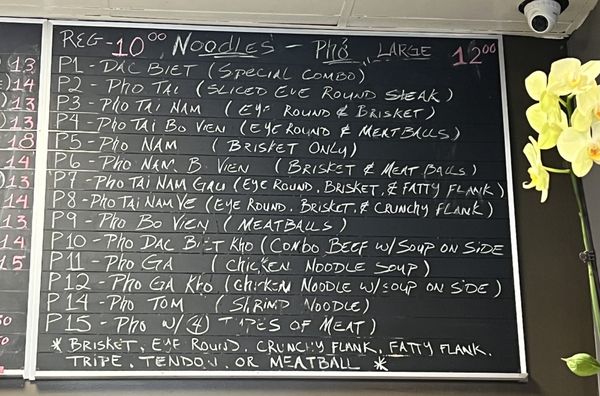 REG - 10⁰⁰ NOODLES - PHỞ LARGE 12⁰⁰
P1 - DAC BIET (SPECIAL COMBO)
P2 - PHO TAI (SLICED EYE ROUND STEAK)
P3 - PHO TAI NAM (EYE ROUND & BRISKET)
P4 - PHO TAI BO VIEN (EYE ROUND & MEATBALLS)
P5 - PHO NAM (BRISKET ONLY)
P6 - PHO NAM B. VIEN (BRISKET & MEAT BALLS)
P7 - PHO TAI NAM GAU (EYE ROUND, BRISKET, & FATTY FLANK)
P8 - PHO TAI NAM VE (EYE ROUND, BRISKET, & CRUNCHY FLANK)
P9 - PHO BO VIEN (MEATBALLS)
P10 - PHO DAC BIET KHO (COMBO BEEF W/SOUP ON SIDE
P11 - PHO GA (CHICKEN NOODLE SOUP)
P12 - PHO GA KHO (CHICKEN NOODLE W/SOUP ON SIDE)
P14 - PHO TOM (SHRIMP NOODLE)
P15 - PHO W/ (4) TYPES OF MEAT)
* BRISKET, EYE ROUND, CRUNCHY FLANK, FATTY FLANK,
TRIPE, TENDON, OR MEATBALL *
13
14
13
13
18
14
13
14
13
14
15